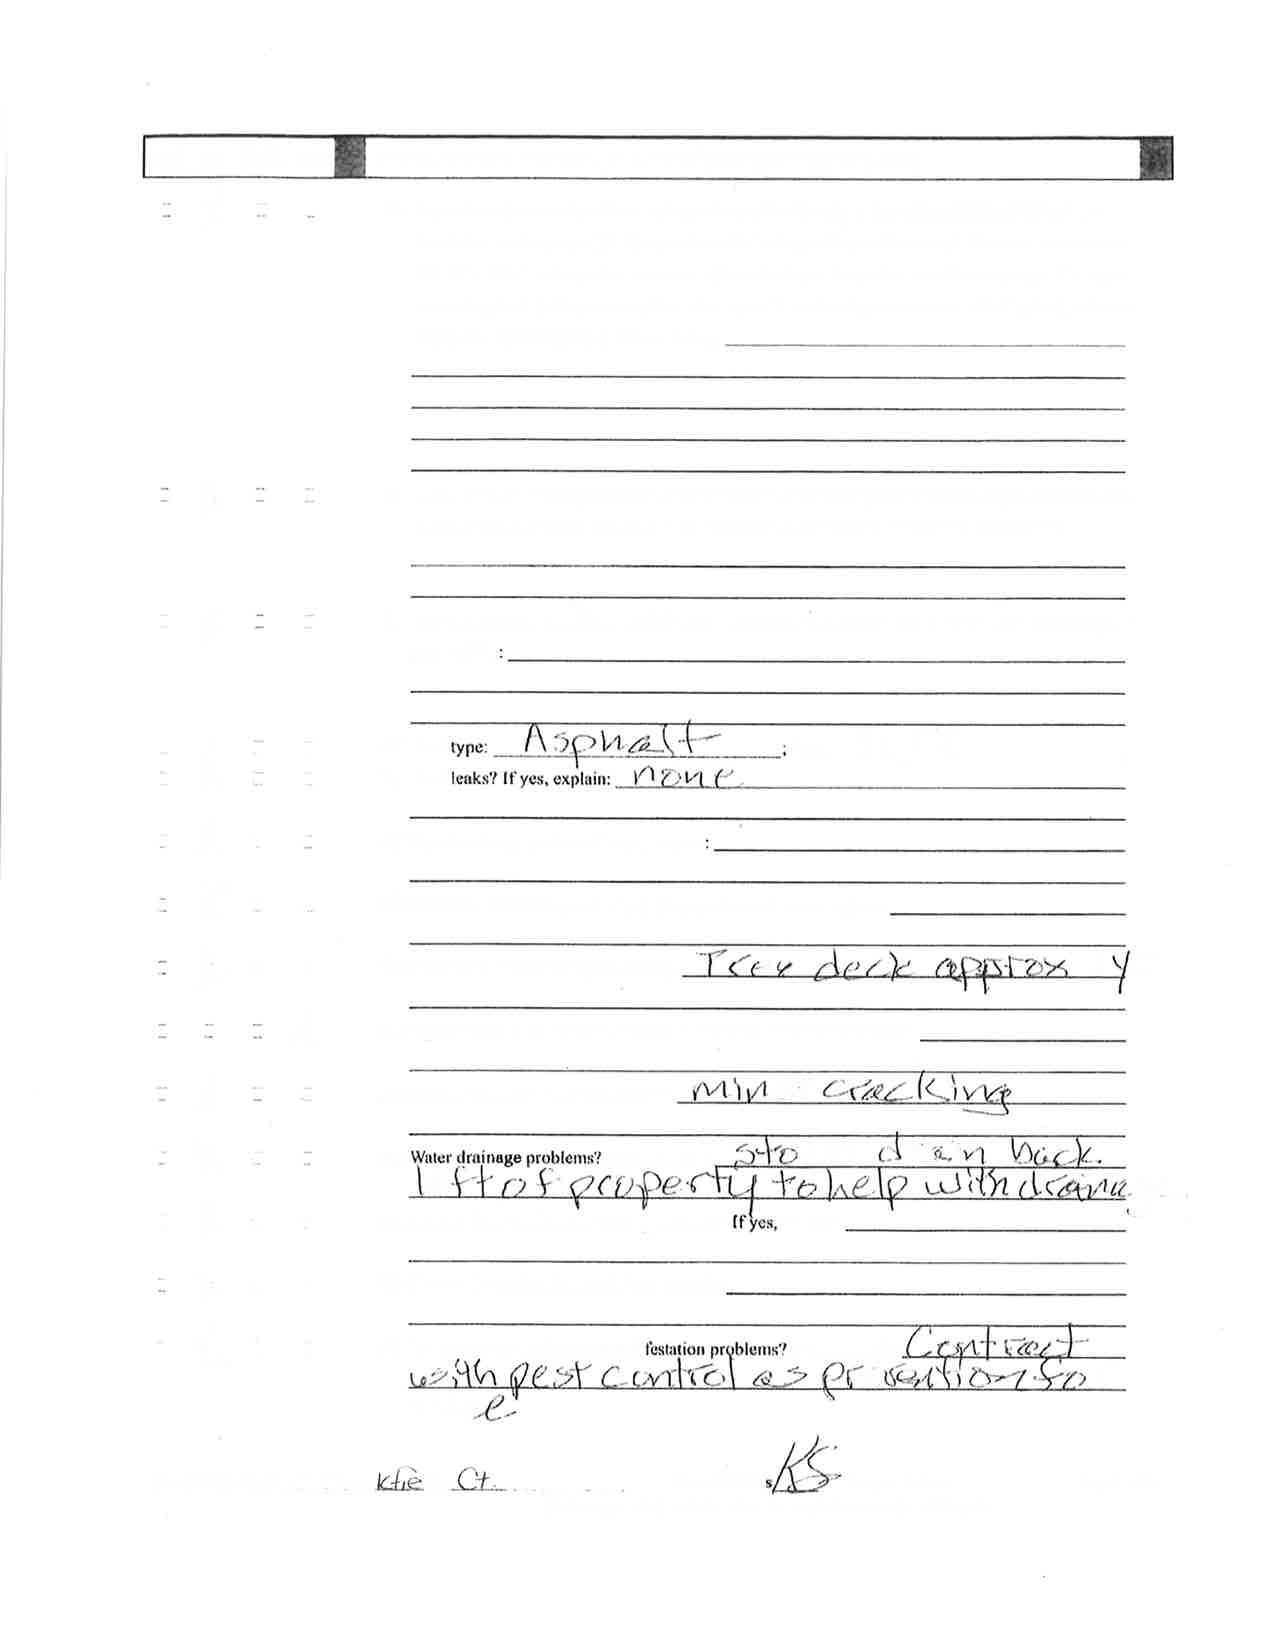 :
type: Asphalt ;
leaks? If yes, explain: none
:
Trex deck approx y
Min cracking
Water drainage problems? sto d in back.
1 ft of property to help with draina
If yes,
festation problems? Contract
with pest control as pr vention fo
e
Ct. s KS